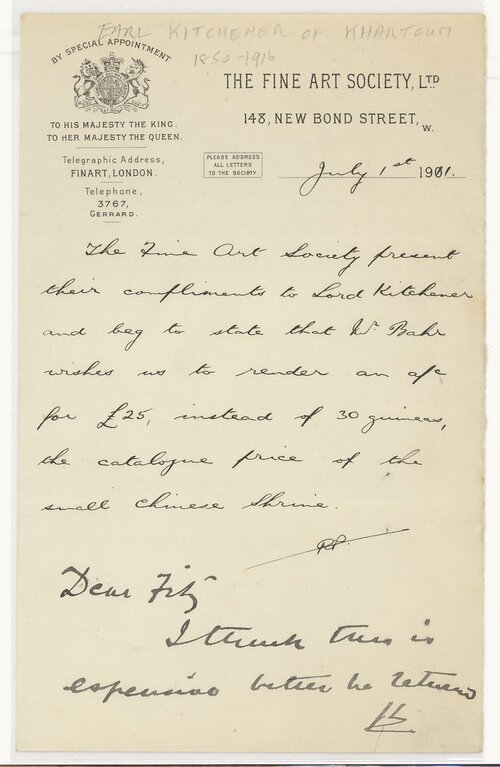 EARL KITCHENER OF KHARTOUM
1850-1916
BY SPECIAL APPOINTMENT
TO HIS MAJESTY THE KING.
TO HER MAJESTY THE QUEEN.
Telegraphic Address,
FINART, LONDON.
Telephone,
3767,
GERRARD.
THE FINE ART SOCIETY, LTD
148, NEW BOND STREET, W.
PLEASE ADDRESS
ALL LETTERS
TO THE SOCIETY.
July 1st 1911.
The Fine Art Society present
their compliments to Lord Kitchener
and beg to state that Mr. Bahr
wishes us to render an a/c
for £25, instead of 30 guineas,
the catalogue price of the
small Chinese Shrine.
Dear Fitz
I think this is
expensive better be returned
K